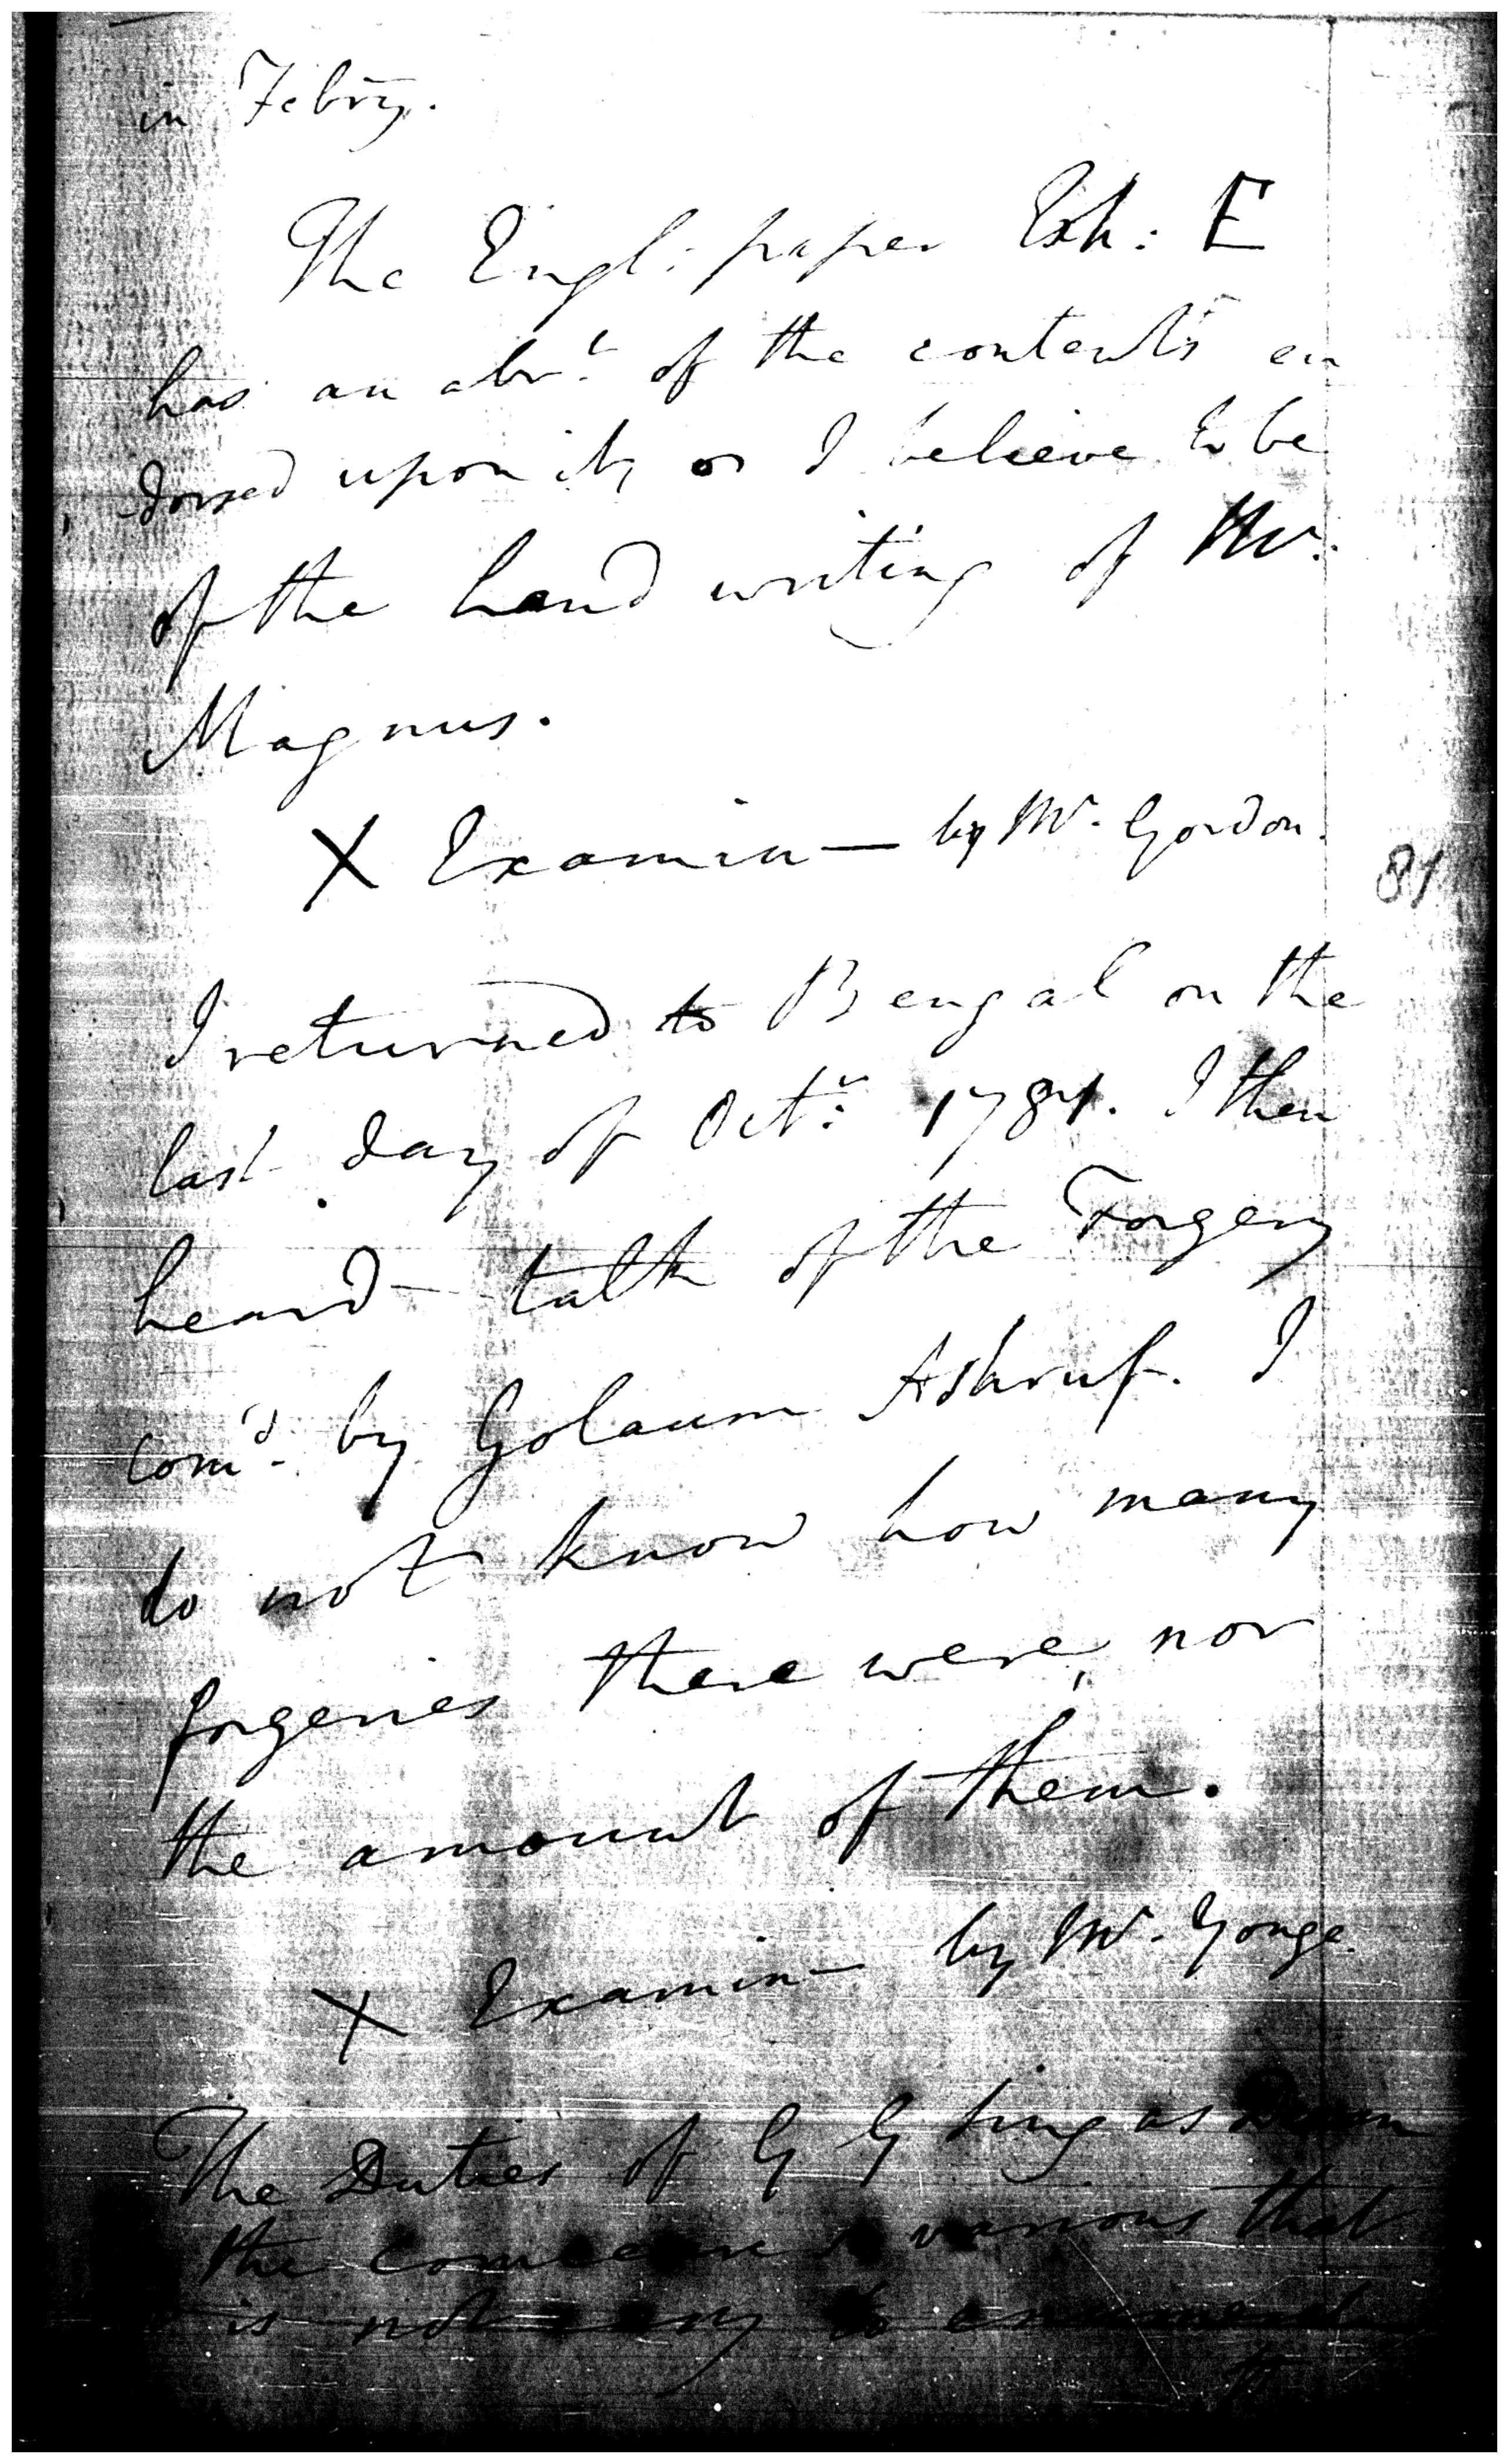 in Febry.
The Engl: paper Exh: E
has an abt. of the contents en
-dorsed upon it, or I believe to be
of the hand writing of Mr.
Magnus.
X Examin— by Mr. Gordon.
81
I returned to Bengal on the
last day of Octr. 1781. I then
heard talk of the Forgery
com'd. by Golaum Ashruf. I
do not know how many
forgeries there were, nor
the amount of them.
X Examin— by Mr. Yonge.
The Duties of G G Sing as Dewan
the are various that
is not easy to